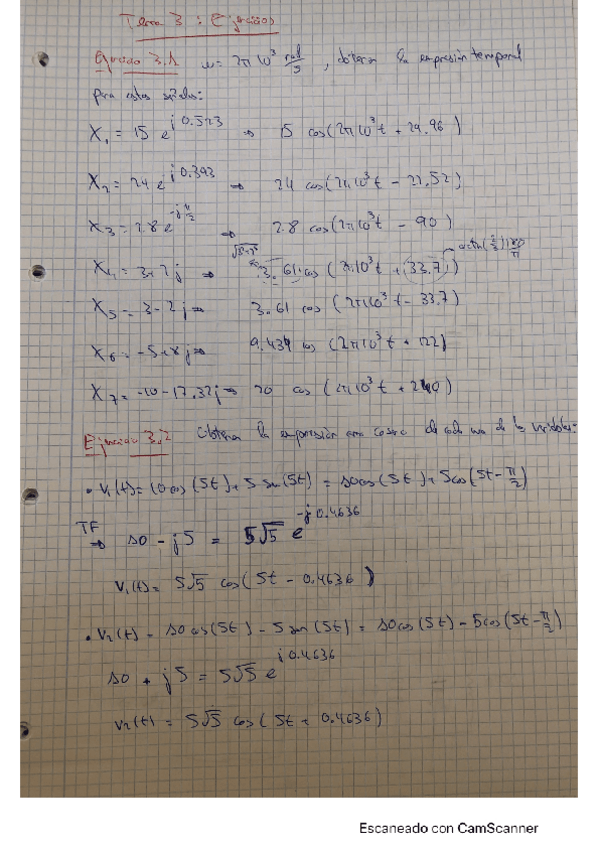 Tema 3 : Ejercicios
Ejercicio 3.1 ω = 2π10³ rad/s , obtener la expresión temporal
para estas señales:
X₁ = 15 e^{j 0.523} → 15 cos(2π10³t + 29.96)
X₂ = 24 e^{j 0.393} → 24 cos(2π10³t - 22,52)
X₃ = 2.8 e^{-jπ/2} → 2.8 cos(2π10³t - 90)
X₄ = 3+2j → 3.61 cos (2π10³t + (33.7))
X₅ = 3-2j → 3.61 cos (2π10³t - 33.7)
X₆ = -5+8j → 9.434 cos (2π10³t + 122)
X₇ = -10-17.32j → 20 cos (2π10³t + 240)
Ejercicio 3.2 Obtener la expresión en coseno de cada una de las variables:
• v₁(t) = 10cos(5t) + 5 sin(5t) = 10cos(5t) + 5cos(5t-π/2)
TF
⇒ 10 - j5 = 5√5 e^{-j0.4636}
v₁(t) = 5√5 cos(5t - 0.4636)
• v₂(t) = 10cos(5t) - 5 sin(5t) = 10cos(5t) - 5cos(5t-π/2)
10 + j5 = 5√5 e^{j0.4636}
v₂(t) = 5√5 cos(5t + 0.4636)
Escaneado con CamScanner